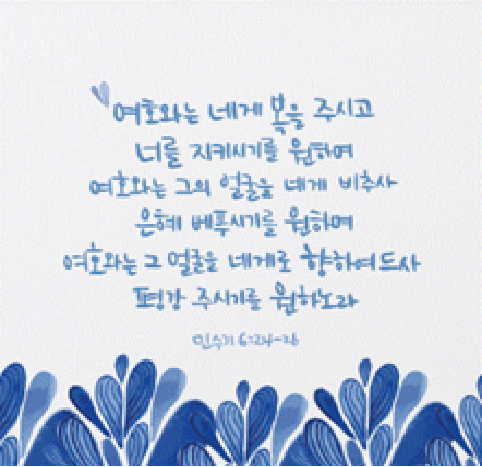 여호와는 네게 복을 주시고
너를 지키시기를 원하며
여호와는 그의 얼굴을 네게 비추사
은혜 베푸시기를 원하며
여호와는 그 얼굴을 네게로 향하여 드사
평강 주시기를 원하노라
민수기 6:24-26